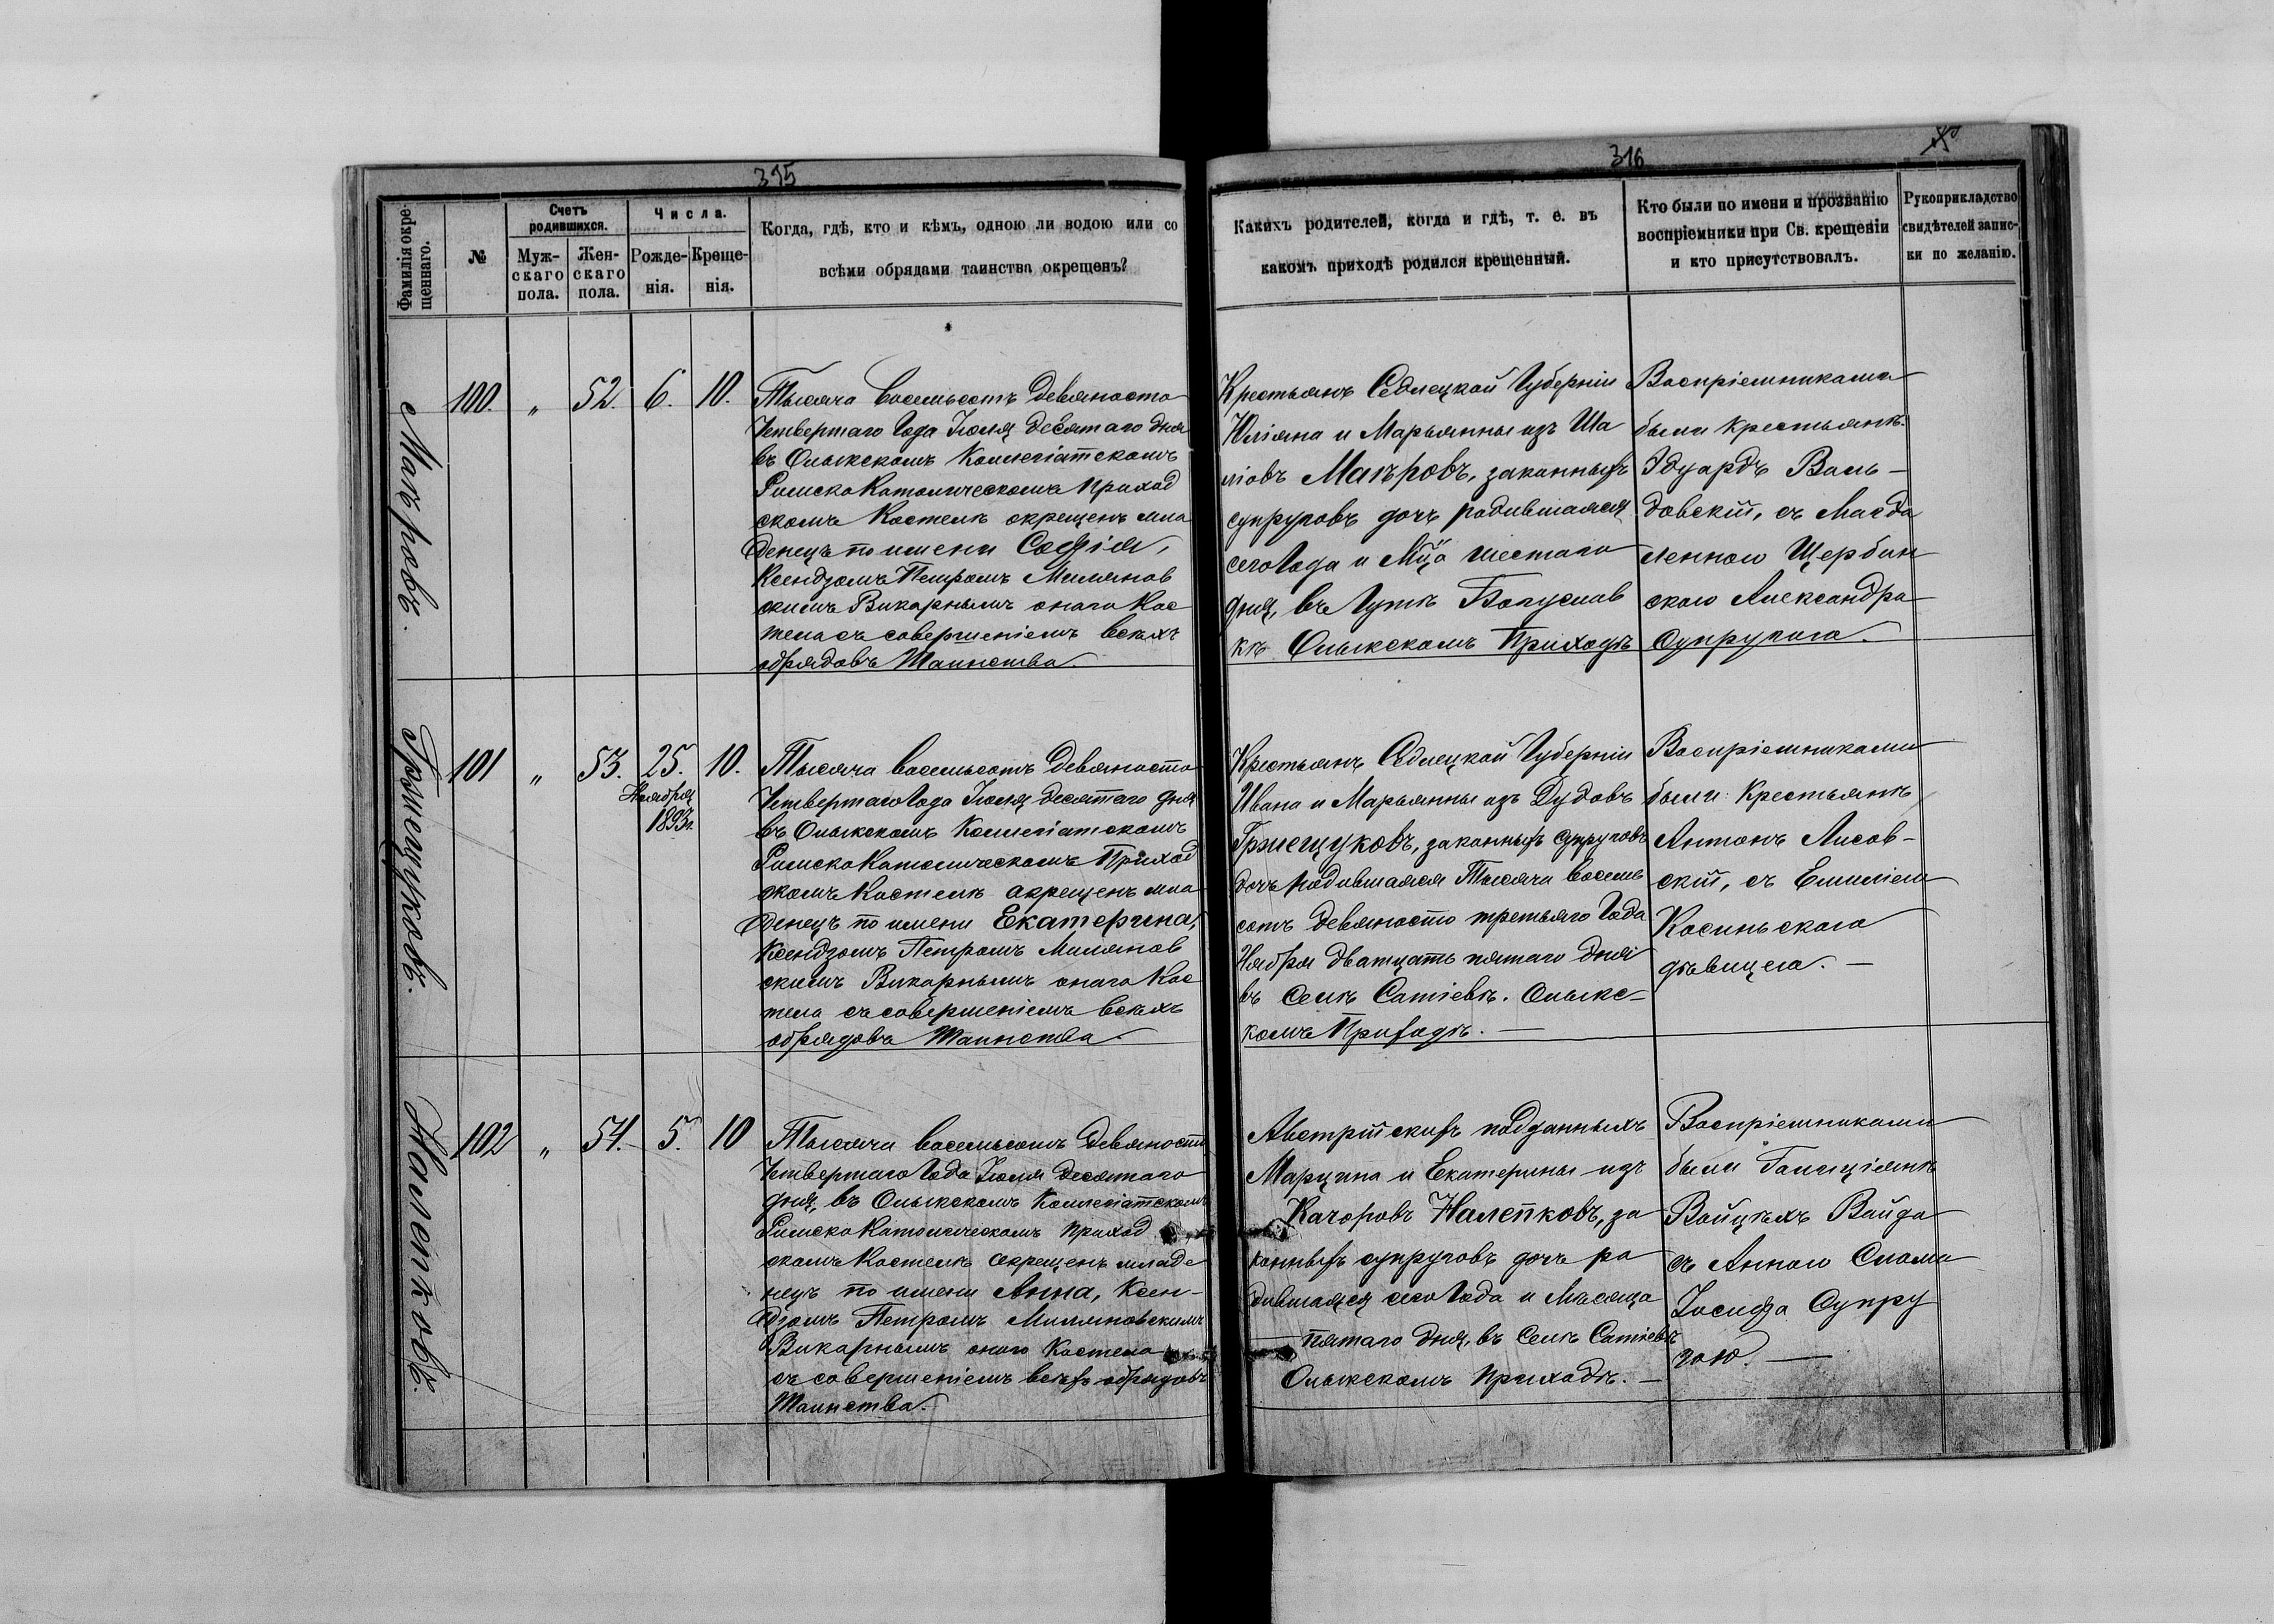 315
Фамилія окре-
щеннаго.
№
Счетъ
родившихся.
Муж-
скаго
пола.
Жен-
скаго
пола.
Числа.
Рожде-
нія.
Креще-
нія.
Когда, гдѣ, кто и кѣмъ, одною ли водою или со
всѣми обрядами таинства окрещенъ?
Макъровъ.
100.
"
52.
6.
10.
Тысяча восемьсотъ девяносто
Четвертаго Года Іюля десятаго дня
въ Олыкскомъ Коллегіатскомъ
Римско Католическомъ Приход
скомъ Костелѣ окрещенъ мла
денецъ по имени Софія,
Ксендзомъ Петромъ Миляновскимъ
скимъ Викарнымъ онаго Кос
тела съ совершеніемъ всѣхъ
обрядовъ Таинства
Гржещуковъ.
101
"
53.
25.
Ноября
1893г.
10.
Тысяча восемьсотъ девяносто
Четвертаго Года Іюля десятаго дня
въ Олыкскомъ Коллегіатскомъ
Римско Католическомъ Приход
скомъ Костелѣ окрещенъ мла
денецъ по имени Екатерина,
Ксендзомъ Петромъ Милянов
скимъ Викарнымъ онаго Кос
тела съ совершеніемъ всѣхъ
обрядовъ Таинства
Налепковъ.
102
"
54.
5.
10
Тысяча восемьсотъ девяносто
Четвертаго Года Іюля десятаго
дня, въ Олыкскомъ Коллегіатскомъ
Римско Католическомъ Приход
скомъ Костелѣ окрещенъ младе
нецъ по имени Анна, Ксен-
дзомъ Петромъ Миляновскимъ
Викарнымъ онаго Костела
съ совершеніемъ всѣхъ обрядовъ
Таинства.
316
Какихъ родителей, когда и гдѣ, т. е. въ
какомъ приходѣ родился крещенный.
Кто были по имени и прозванію
воспріемники при Св. крещеніи
и кто присутствовалъ.
Рукоприкладство
свидѣтелей запис-
ки по желанію.
Крестьянъ Седлецкой Губерніи
Юліяна и Марьянны изъ Ша
ліовъ Макъровъ, законныхъ
супруговъ дочь родившаяся
сего Года и М-ца шестаго
дня, въ Гутѣ Богуслав
кѣ Олыкскомъ Приходѣ
Воспріемниками
были крестьянѣ.
Эдуардъ Валь-
довскій, съ Магда
леною Щербин
скою Александра
Супругою.
Крестьянъ Седлецкой Губерніи
Ивана и Марьянны изъ Дудовъ
Гржещуковъ, законныхъ супруговъ
дочь родившаяся Тысяча восемь
сотъ девяносто третьяго Года
Ноября дватцать пятаго дня
въ Селѣ Сатіевѣ. Олыкс-
комъ Приходѣ.
Воспріемниками
были: Крестьянѣ
Антонъ Лисов-
скій, съ Емиліею
Косинскою
дѣвицею.
Австрійскихъ подданныхъ
Марцина и Екатерины изъ
Качоровъ Налепковъ, за
конныхъ супруговъ дочь ро
дившаяся сего Года и Мѣсяца
пятаго дня, въ Селѣ Сатіевѣ
Олыкскомъ Приходѣ.
Воспріемниками
были Галиціянѣ
Войцѣхъ Вайда
съ Анною Слома
Іосифа Супру
гою.